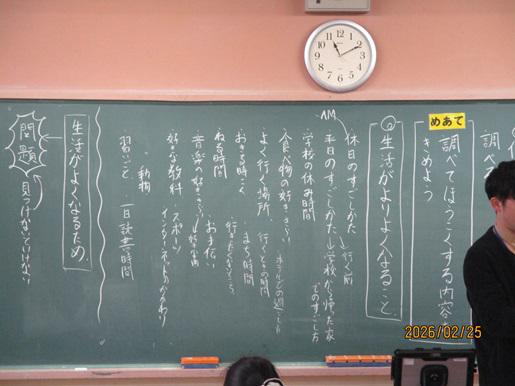 調べ
めあて
調べてほうこくする内容を
きめよう
◎生活がよりよくなること。
AM
休日のすごしかた→行く前
平日のすごしかた→学校から帰った家
でのすごし方
学校の休み時間
食べ物の好ききらい
よく行く場所、行くときの時間
おきる時こく
まち時間
ねる時間
行きたくないところ
音楽の好ききらい
お手伝い
好きな教科・スポーツ
インターネットのかかわり
動物
習いごと 一日読書時間
生活がよくなるため。
問題
見つけないといけない
2026/02/25